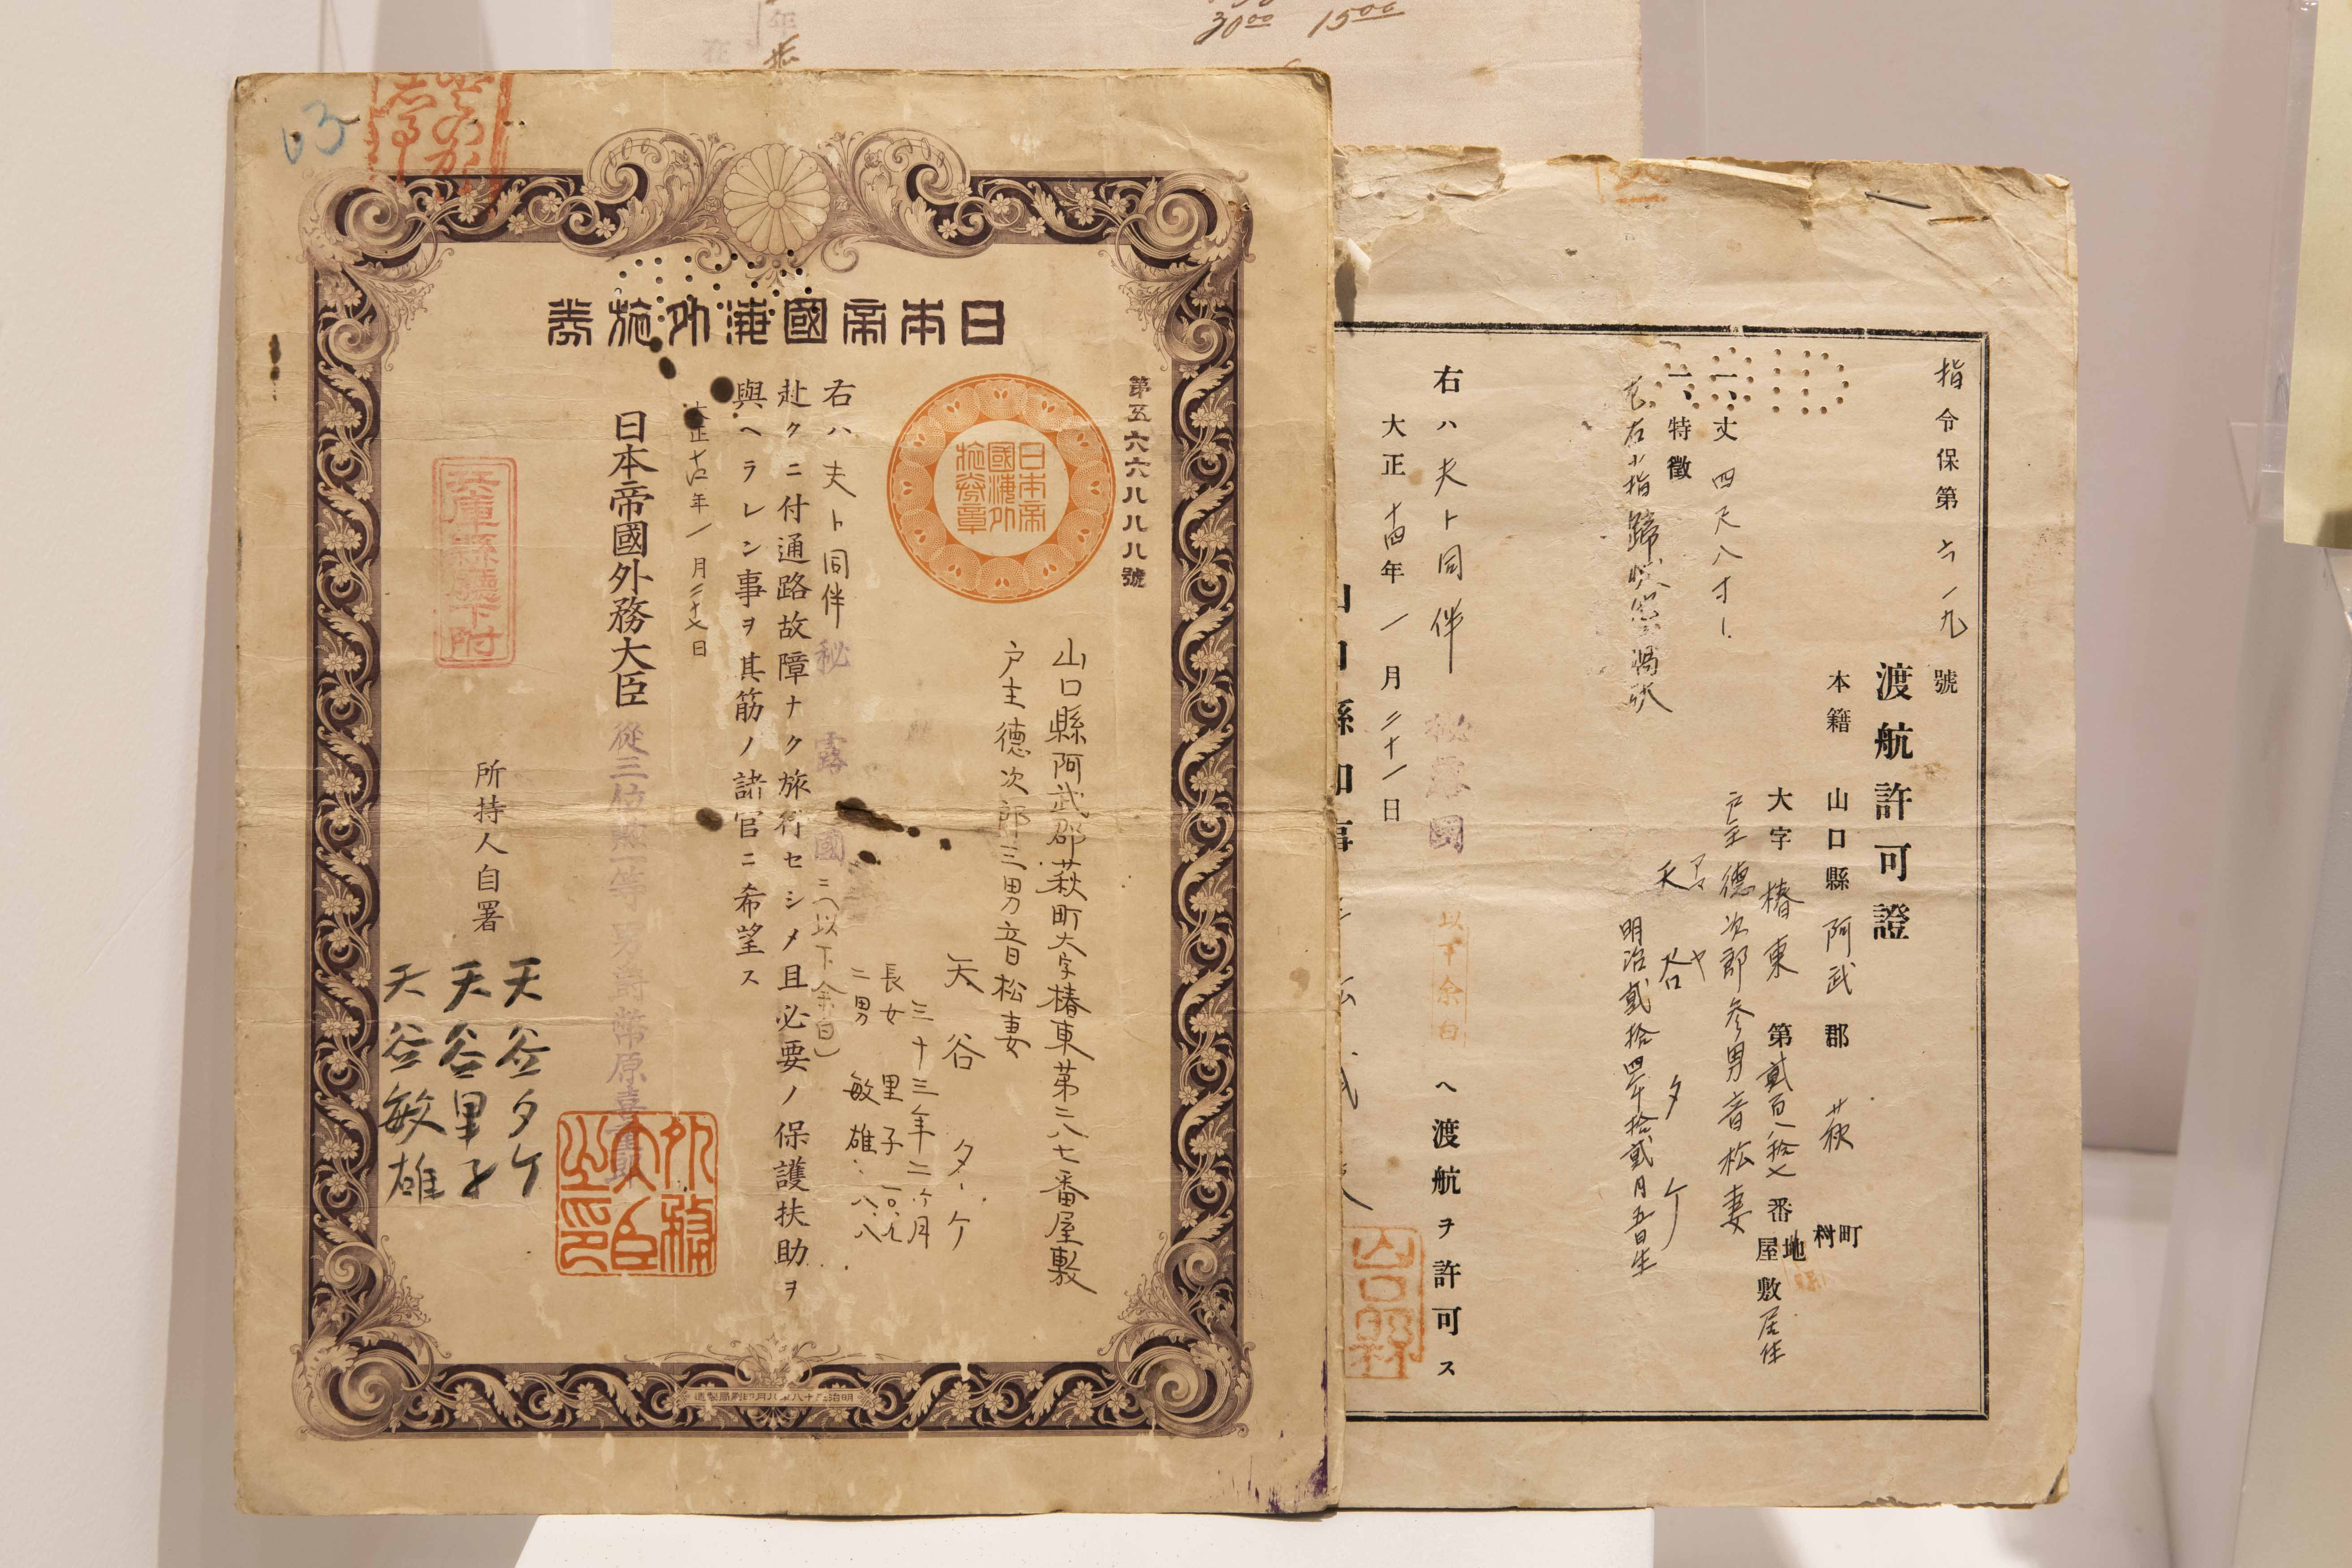 30⁰⁰ 15⁰⁰
日本帝國海外旅券
第五六六八八八號
日本帝國海外旅券章
山口縣阿武郡萩町大字椿東第二八七番屋敷
戸主德次郎三男音松妻
天谷タケ
三十三年二ケ月
長女 里子 一〇、九
二男 敏雄 八、八
右ハ夫ト同伴秘露國ニ(以下余白)
赴クニ付通路故障ナク旅行セシメ且必要ノ保護扶助ヲ
與ヘラレン事ヲ其筋ノ諸官ニ希望ス
大正十四年一月二十七日
日本帝國外務大臣從三位勲一等男爵幣原喜重郎
外務大臣之印
兵庫縣廳下附
所持人自署
天谷タケ
天谷里子
天谷敏雄
指令保第六一九號
渡航許可證
本籍 山口縣阿武郡萩町村
大字椿東第貳百八拾七番地屋敷居住
戸主德次郎参男音松妻
天谷タケ
アマヤ
明治貳拾四年拾貳月五日生
一、丈 四尺八寸
一、特徴
右ハ夫ト同伴秘露國以下余白ヘ渡航ヲ許可ス
大正十四年一月二十一日
山口縣知事